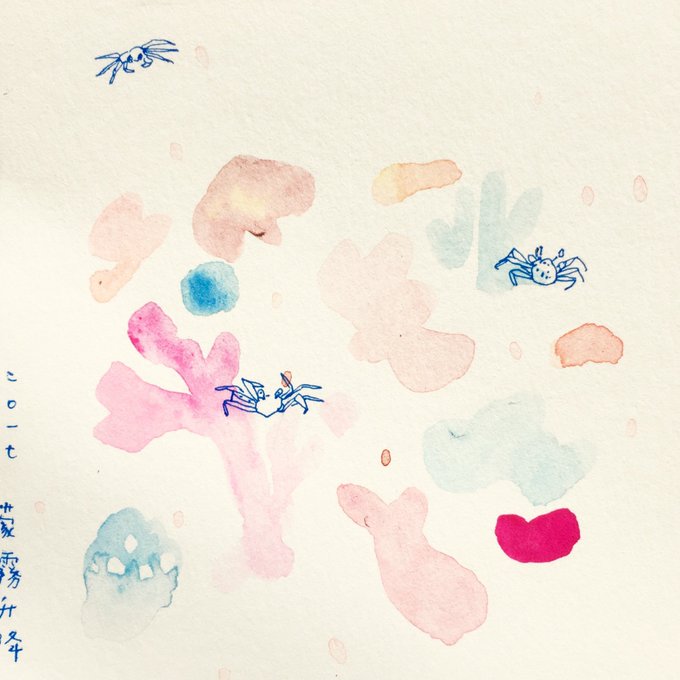 二〇一七 蒙霧升降